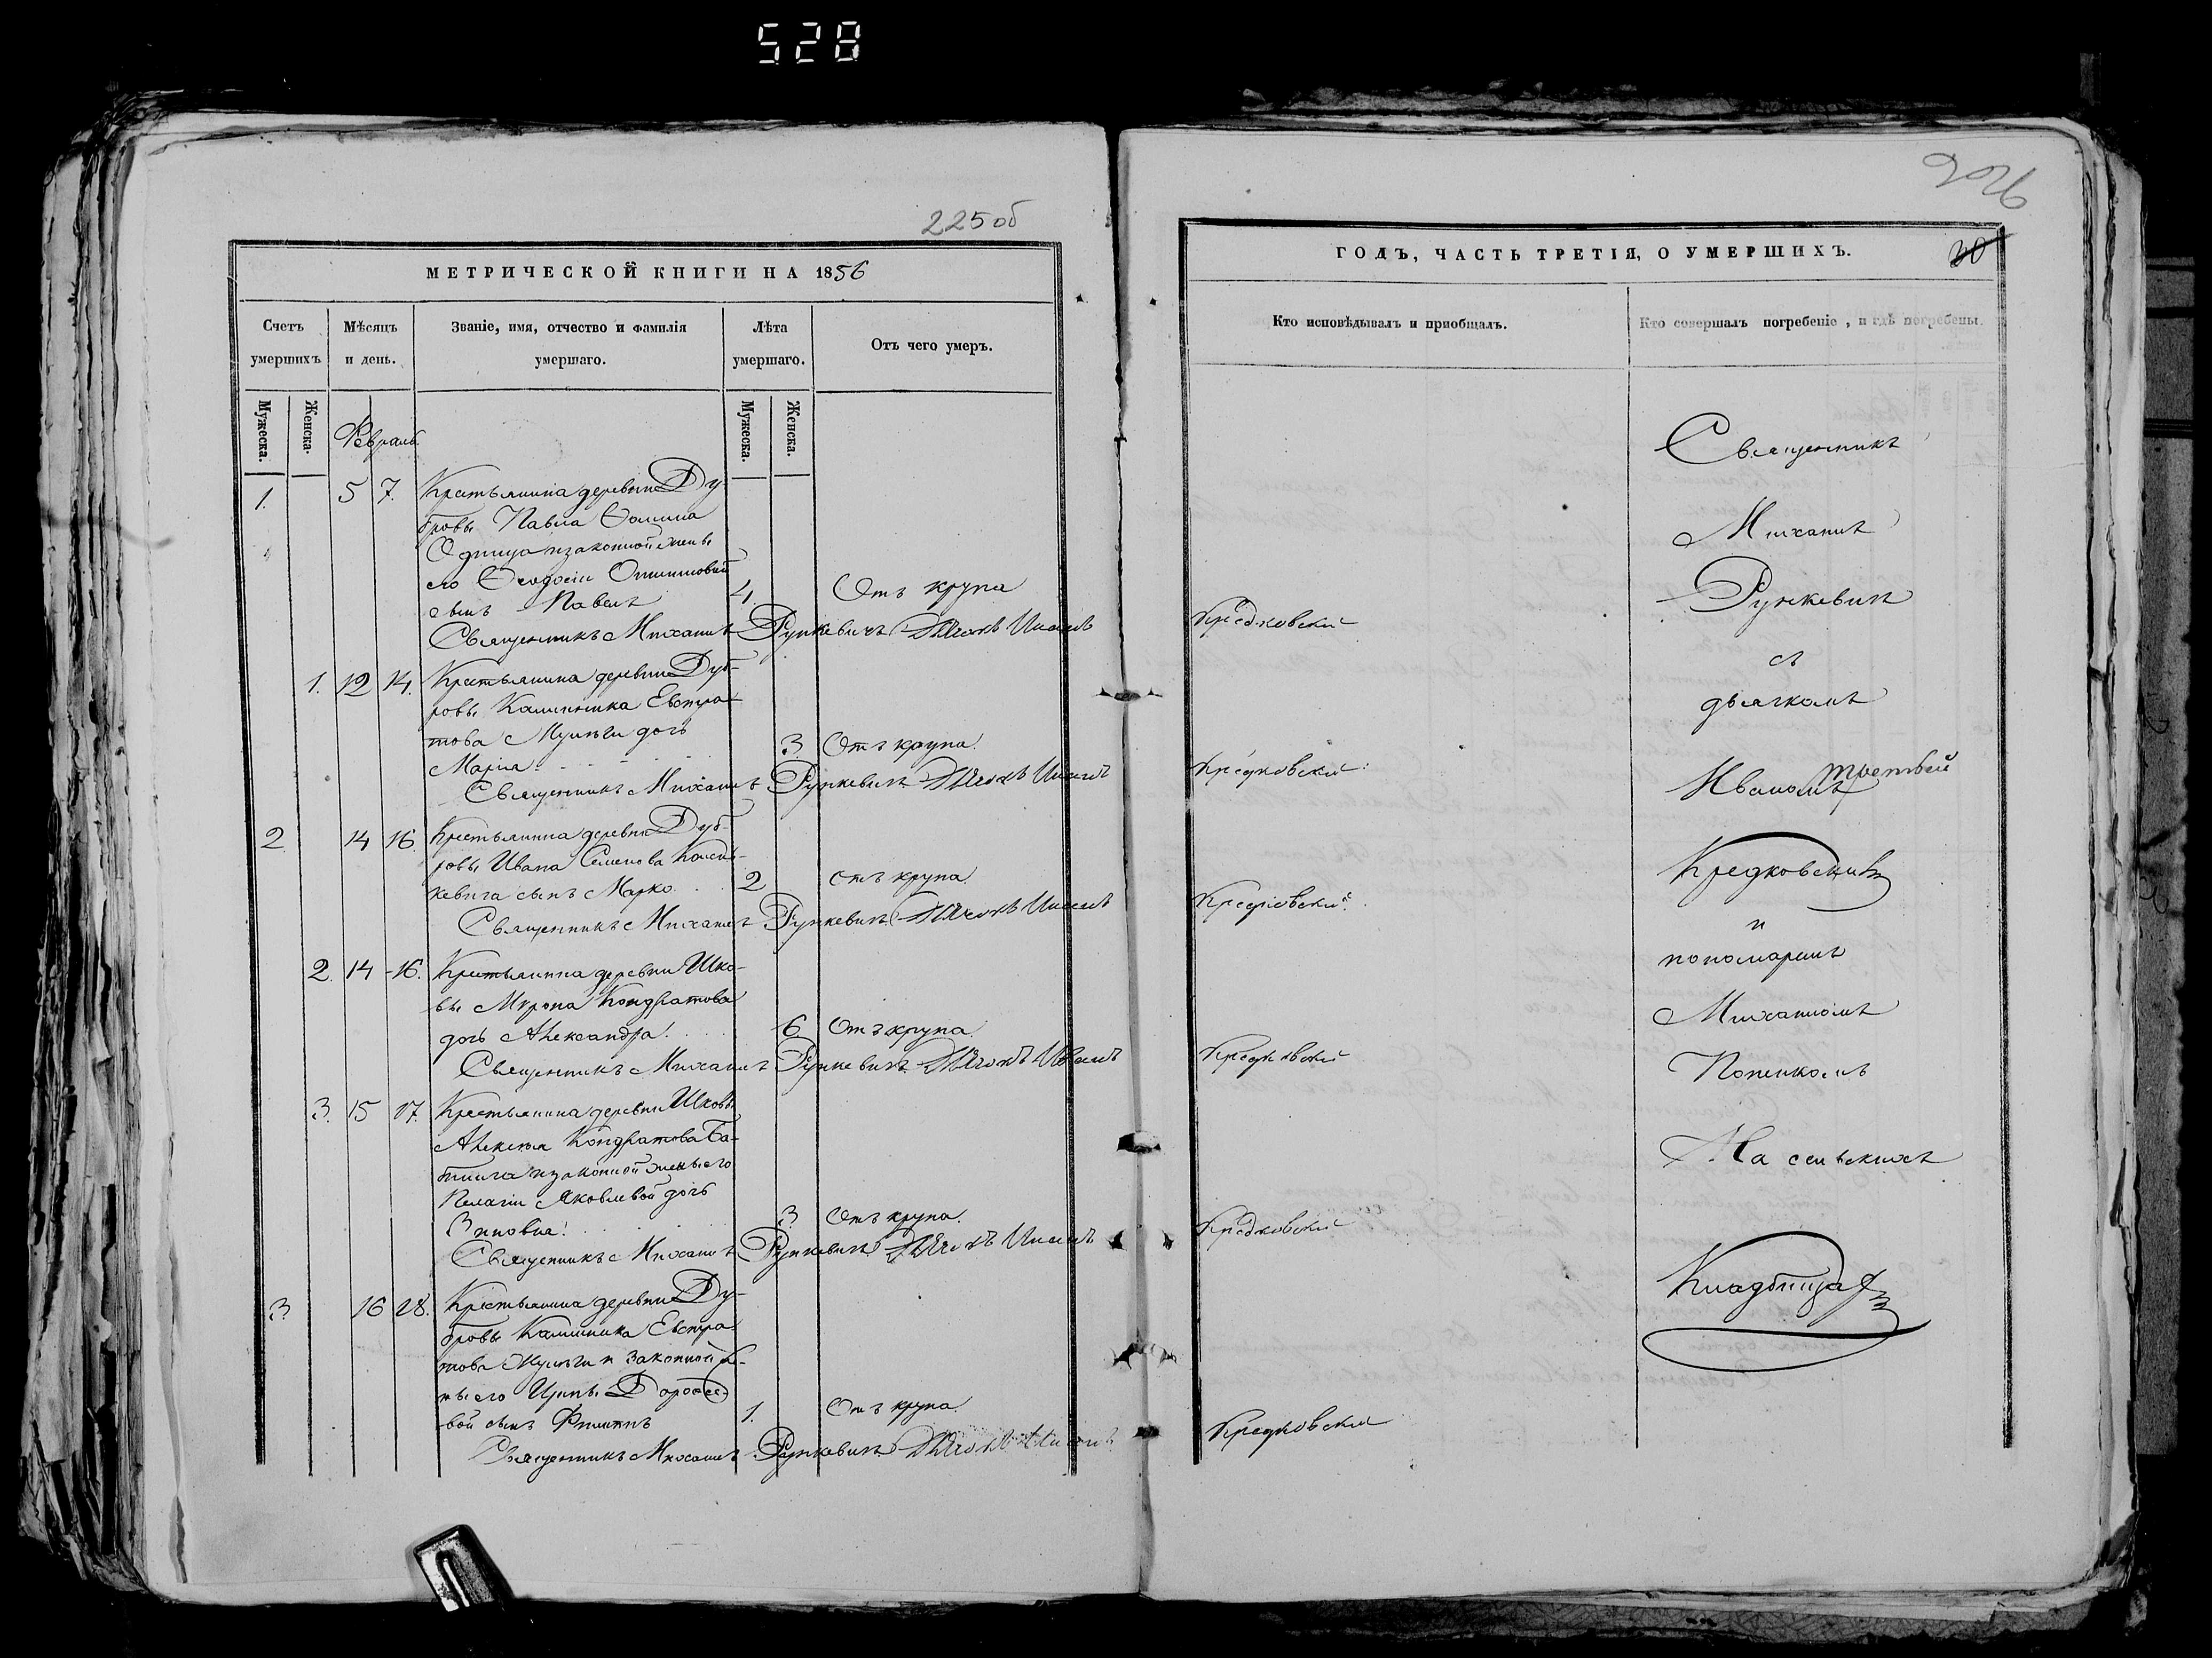 528
225 об
МЕТРИЧЕСКОЙ КНИГИ НА 1856
Счетъ умершихъ
Мѣсяцъ и день.
Званіе, имя, отчество и фамилія умершаго.
Лѣта умершаго.
Отъ чего умеръ.
Мужеска.
Женска.
Мужеска.
Женска.
Февраль
1. 5 7. Крестьянина деревни Ду-
бровы Павла Ѳомина
и законной жены
его Ѳеодосіи
сынъ Павелъ 4. Отъ крупа
Священникъ Михаилъ Рункевичъ Дьячокъ Иванъ
1. 12 14. Крестьянина деревни Дуб-
ровы Калинника Евстра-
това дочь
Марія 3 Отъ крупа.
Священникъ Михаилъ Рункевичъ Дьячокъ Иванъ
2. 14 16. Крестьянина деревни Дуб-
ровы Ивана Семенова
кевича сынъ Марко 2 Отъ крупа.
Священникъ Михаилъ Рункевичъ Дьячокъ Иванъ
2. 14 16. Крестьянина деревни
Мирона Кондратова
дочь Александра. 6 Отъ крупа
Священникъ Михаилъ Рункевичъ Дьячокъ Иванъ
3. 15 17. Крестьянина деревни
Алексѣя Кондратова Ба-
и законной жены его
Пелагіи Яковлевой дочь
Зиновія. 3 Отъ крупа.
Священникъ Михаилъ Рункевичъ Дьячокъ Иванъ
3 16 28. Крестьянина деревни Ду-
бровы Калинника Евстра-
това и законной же-
ны его Ирины Дороѳее-
вой сынъ Филиппъ 1. Отъ крупа.
Священникъ Михаилъ Рункевичъ Дьячокъ Иванъ
226
ГОДЪ, ЧАСТЬ ТРЕТІЯ, О УМЕРШИХЪ.
Кто исповѣдывалъ и пріобщалъ.
Кто совершалъ погребеніе, и гдѣ погребены.
Кредковскій
Кредковскій
Кредковскій
Кредковскій
Кредковскій
Кредковскій
Священникъ
Михаилъ
Рункевичъ
съ
дьячкомъ
Иваномъ
Кредковскимъ
и
пономаремъ
Михаиломъ
Попенкомъ
На сельскихъ
Кладбищахъ